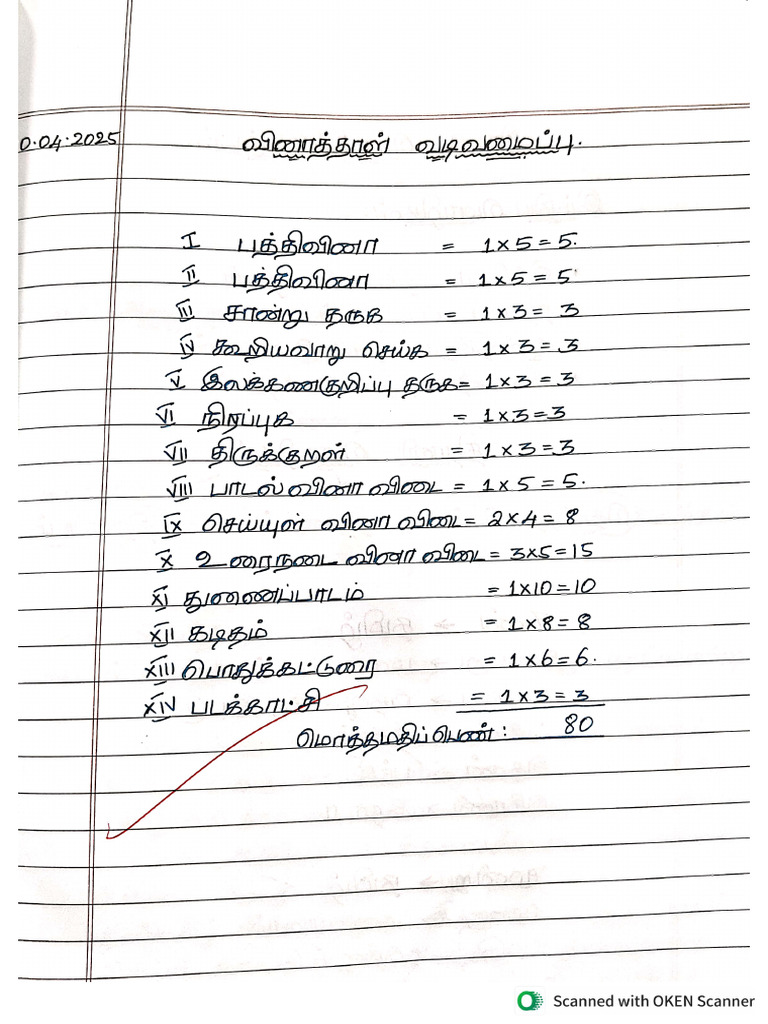 0.04.2025 வினாத்தாள் வடிவமைப்பு.
I பத்திவினா = 1x5=5.
II பத்திவினா = 1x5=5
III சான்று தருக = 1x3= 3
IV கூறியவாறு செய்க = 1x3=3
V இலக்கணகுறிப்பு தருக= 1x3=3
VI நிரப்புக = 1x3=3
VII திருக்குறள் = 1x3=3
VIII பாடல் வினா விடை = 1x5=5.
IX செய்யுள் வினா விடை= 2x4=8
X உரைநடை வினா விடை= 3x5=15
XI துணைப்பாடம் = 1x10=10
XII கடிதம் = 1x8=8
XIII பொதுக்கட்டுரை = 1x6=6.
XIV படக்காட்சி = 1x3=3
மொத்தமதிப்பெண்: 80
Scanned with OKEN Scanner